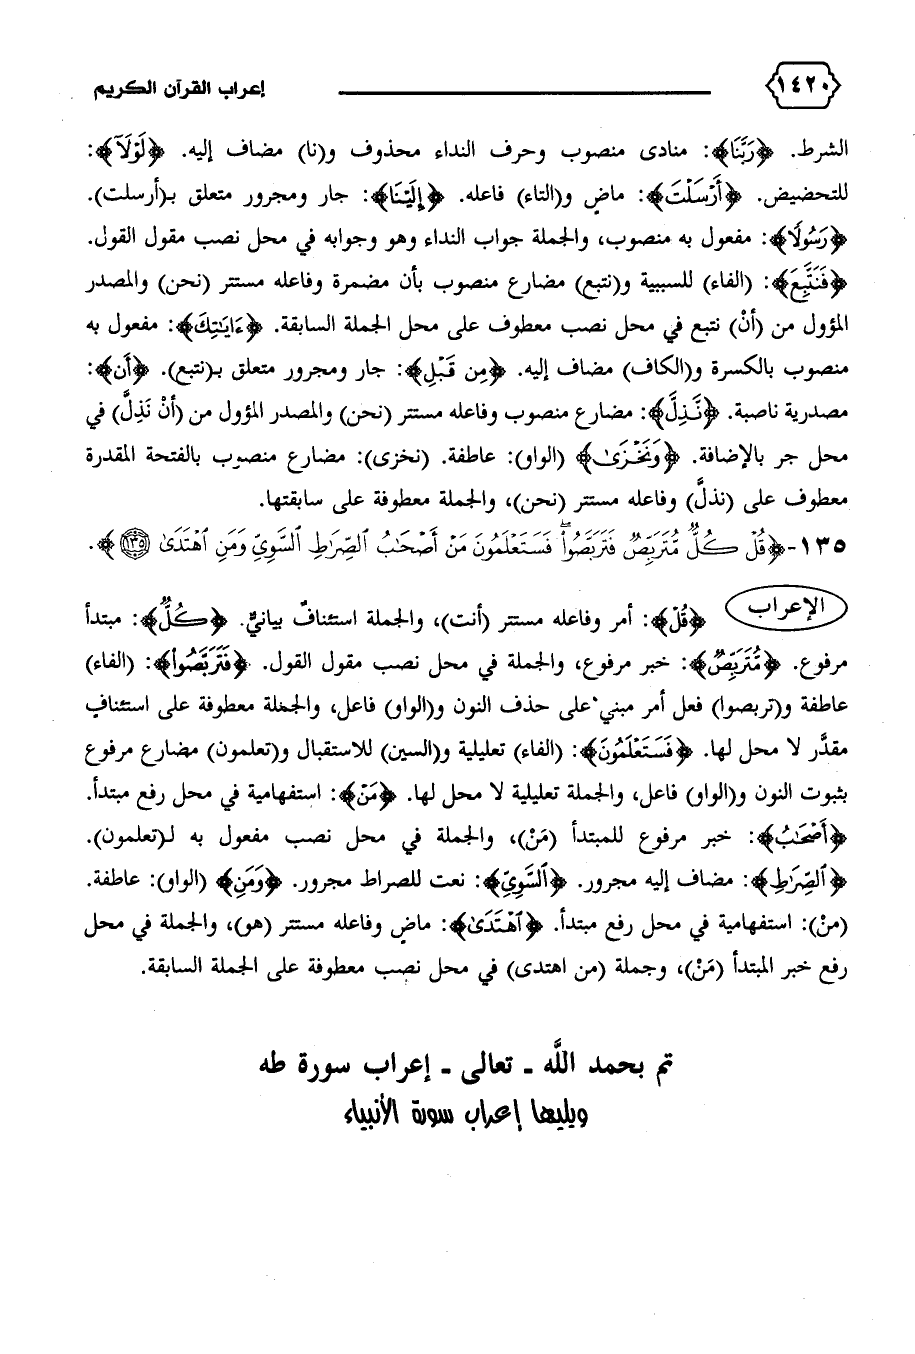 ١٤٢٠ إعراب القرآن الكريم
الشرط. ﴿رَبَّنَا﴾: منادى منصوب وحرف النداء محذوف و(نا) مضاف إليه. ﴿لَوْلَآ﴾:
للتحضيض. ﴿أَرْسَلْتَ﴾: ماضٍ و(التاء) فاعله. ﴿إِلَيْنَا﴾: جار ومجرور متعلق بـ(أرسلت).
﴿رَسُولًا﴾: مفعول به منصوب، والجملة جواب النداء وهو وجوابه في محل نصب مقول القول.
﴿فَنَتَّبِعَ﴾: (الفاء) للسببية و(نتبع) مضارع منصوب بأن مضمرة وفاعله مستتر (نحن) والمصدر
المؤول من (أنْ) نتبع في محل نصب معطوف على محل الجملة السابقة. ﴿ءَايَٰتِكَ﴾: مفعول به
منصوب بالكسرة و(الكاف) مضاف إليه. ﴿مِن قَبْلِ﴾: جار ومجرور متعلق بـ(نتبع). ﴿أَن﴾:
مصدرية ناصبة. ﴿نَّذِلَّ﴾: مضارع منصوب وفاعله مستتر (نحن) والمصدر المؤول من (أنْ نَذِلَّ) في
محل جر بالإضافة. ﴿وَنَخْزَىٰ﴾ (الواو): عاطفة. (نخزى): مضارع منصوب بالفتحة المقدرة
معطوف على (نذلَّ) وفاعله مستتر (نحن)، والجملة معطوفة على سابقتها.
١٣٥-﴿قُلْ كُلٌّ مُّتَرَبِّصٌ فَتَرَبَّصُوا۟ ۖ فَسَتَعْلَمُونَ مَنْ أَصْحَٰبُ ٱلصِّرَٰطِ ٱلسَّوِىِّ وَمَنِ ٱهْتَدَىٰ ١٣٥﴾.
الإعراب ﴿قُلْ﴾: أمر وفاعله مستتر (أنت)، والجملة استئنافٌ بيانيٌّ. ﴿كُلٌّ﴾: مبتدأ
مرفوع. ﴿مُّتَرَبِّصٌ﴾: خبر مرفوع، والجملة في محل نصب مقول القول. ﴿فَتَرَبَّصُوا۟﴾: (الفاء)
عاطفة و(تربصوا) فعل أمر مبني على حذف النون و(الواو) فاعل، والجملة معطوفة على استئنافٍ
مقدَّر لا محل لها. ﴿فَسَتَعْلَمُونَ﴾: (الفاء) تعليلية و(السين) للاستقبال و(تعلمون) مضارع مرفوع
بثبوت النون و(الواو) فاعل، والجملة تعليلية لا محل لها. ﴿مَنْ﴾: استفهامية في محل رفع مبتدأ.
﴿أَصْحَٰبُ﴾: خبر مرفوع للمبتدأ (مَنْ)، والجملة في محل نصب مفعول به لـ(تعلمون).
﴿ٱلصِّرَٰطِ﴾: مضاف إليه مجرور. ﴿ٱلسَّوِىِّ﴾: نعت للصراط مجرور. ﴿وَمَنِ﴾ (الواو): عاطفة.
(منْ): استفهامية في محل رفع مبتدأ. ﴿ٱهْتَدَىٰ﴾: ماضٍ وفاعله مستتر (هو)، والجملة في محل
رفع خبر المبتدأ (مَنْ)، وجملة (من اهتدى) في محل نصب معطوفة على الجملة السابقة.
تم بحمد اللَّه ـ تعالى ـ إعراب سورة طه
ويليها إعراب سورة الأنبياء